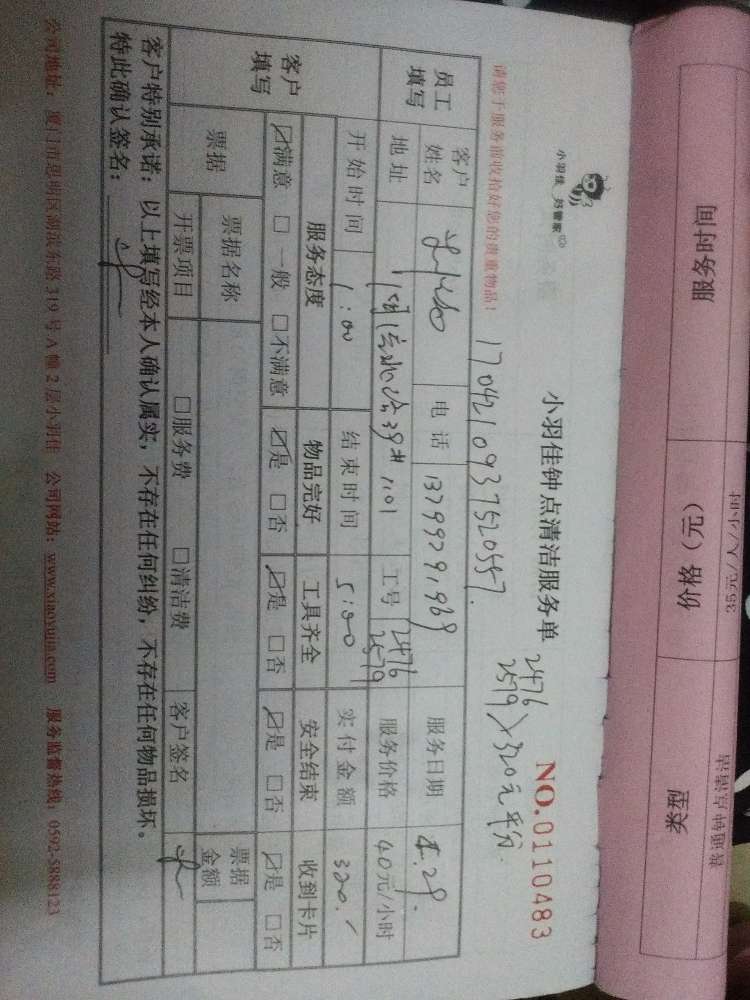 服务时间 价格（元） 类型
35元/人/小时 普通钟点清洁
小羽佳 好管家
小羽佳钟点清洁服务单
NO.0110483
请您于服务前收拾好您的贵重物品！
1704210937520557.
2476
2579 320元平分.
员工填写
客户姓名 电话 13799291969 服务日期 4.29.
地址 39# 1101 工号 2476 2579 服务价格 40元/小时
开始时间 1:00 结束时间 5:00 实付金额 320.
客户填写
服务态度 物品完好 工具齐全 安全结束 收到卡片
☑满意 □一般 □不满意 ☑是 □否 ☑是 □否 ☑是 □否 ☑是 □否
票据 票据名称 票据金额
开票项目 □服务费 □清洁费 客户签名
客户特别承诺：以上填写经本人确认属实，不存在任何纠纷，不存在任何物品损坏。
特此确认签名：
公司地址：厦门市思明区湖滨东路319号A幢2层小羽佳 公司网站：www.xiaoyujia.com 服务监督热线：0592-5888123